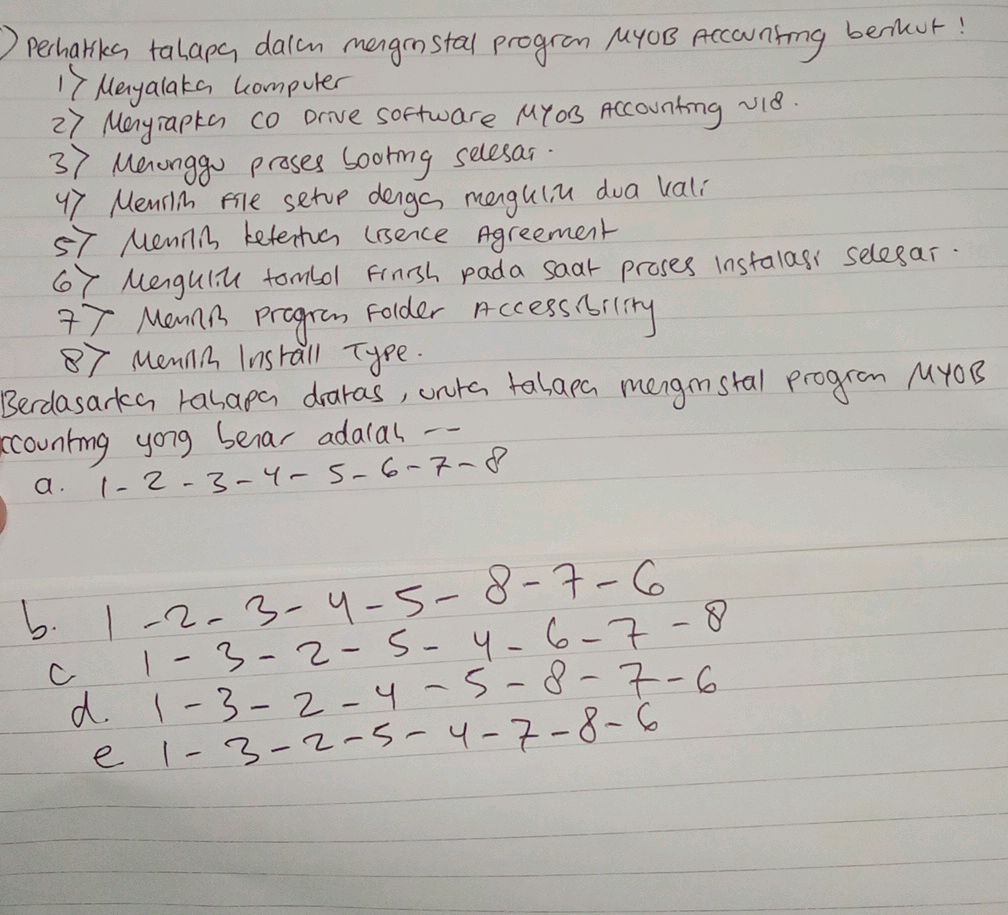 ) Perhatikan tahapan dalam menginstal program MYOB Accounting berikut !
1) Menyalakan komputer
2) Menyiapkan CD Drive software MYOB Accounting v18.
3) Menunggu proses booting selesai.
4) Memilih File setup dengan mengklik dua kali
5) Memilih ketentuan Lisence Agreement
6) Mengklik tombol Finish pada saat proses instalasi selesai.
7) Memilih Program Folder Accessibility
8) Memilih Install Type.
Berdasarkan tahapan diatas, urutan tahapan menginstal program MYOB
ccounting yang benar adalah --
a. 1-2-3-4-5-6-7-8
b. 1-2-3-4-5-8-7-6
c 1-3-2-5-4-6-7-8
d. 1-3-2-4-5-8-7-6
e 1-3-2-5-4-7-8-6